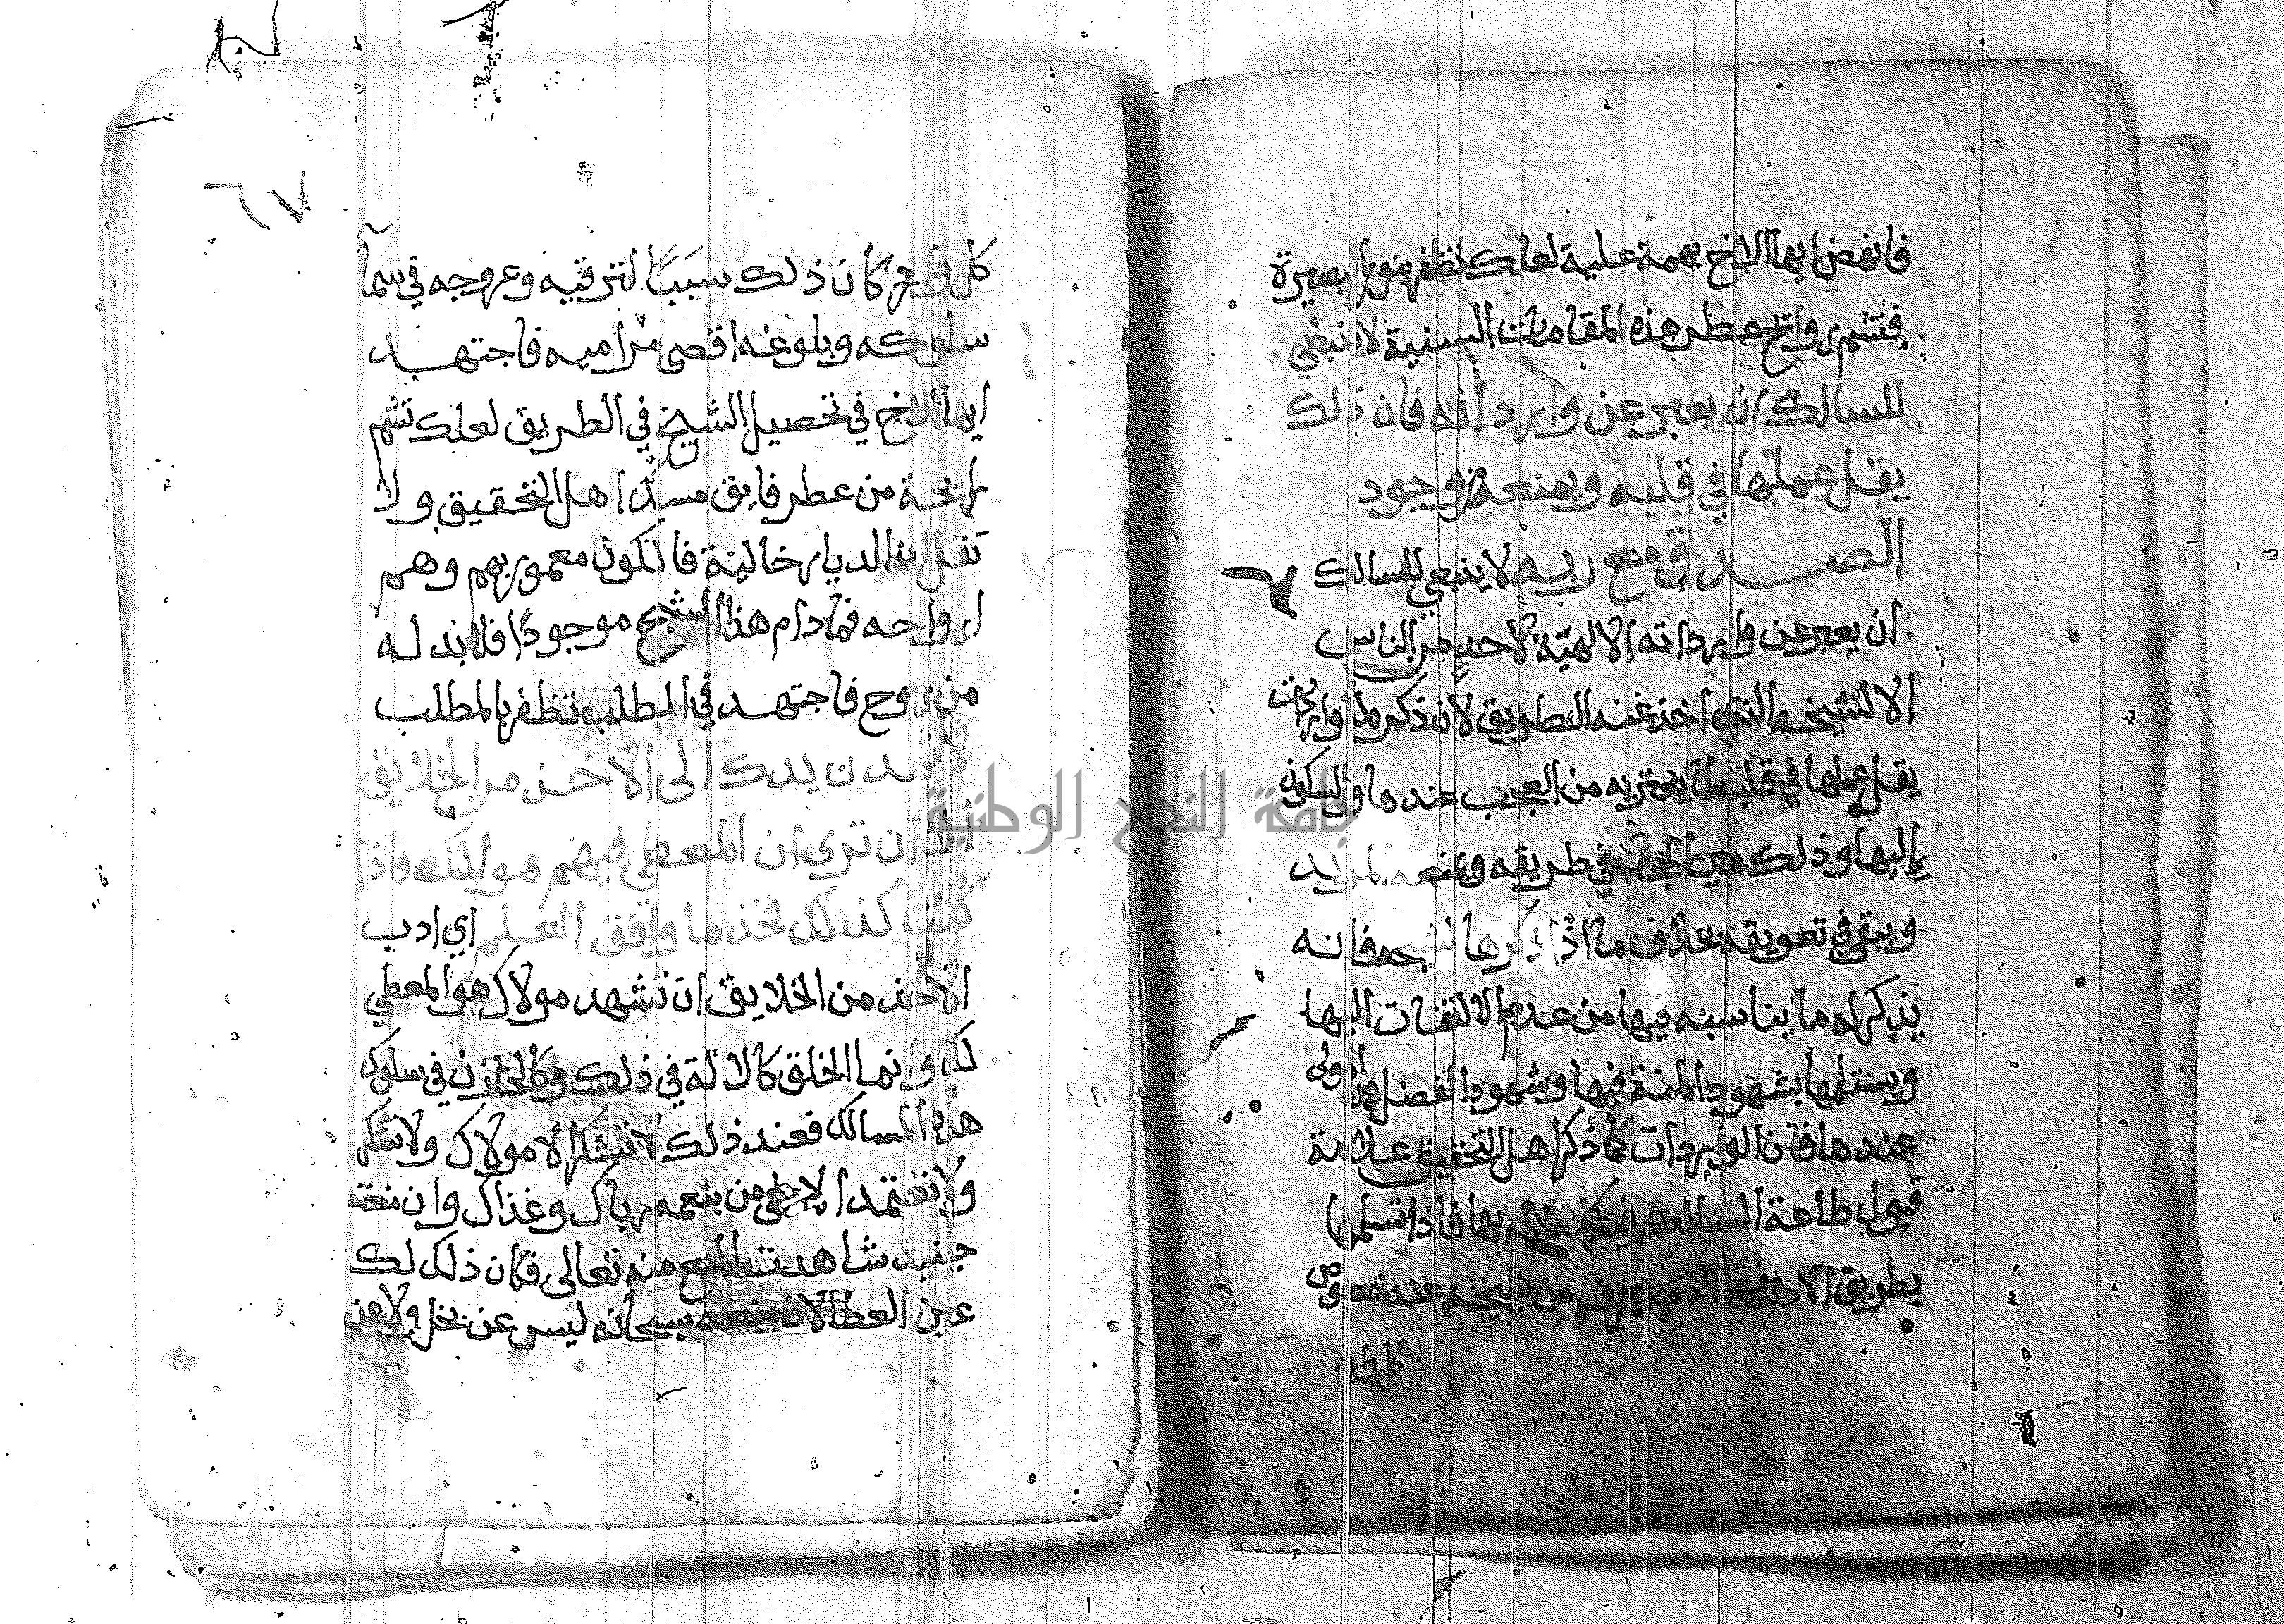 فانهض ايها الاخ بهمة علية لعلك تظفر بنور بصيرة
فتشم روايح عطر هذه المقامات السنية لا ينبغي
للسالك ان يعبر عن وارداته فان ذلك
يقل عملها في قلبه ويمنعه وجود
الصدق مع ربه لا ينبغي للسالك
ان يعبر عن وارداته الالهية لاحد من الناس
الا لشيخه الذي اخذ عنه الطريق لان ذكره للواردات
يقل عملها في قلبه لما يعتريه من العجب عندها والسكون
اليها وذلك عين الجهل في طريقه ويمنعه المزيد
ويبقي في تعويقه بخلاف ما اذا ذكرها لشيخه فانه
يذكر له ما يناسبه فيها من عدم الالتفات اليها
ويستلمها بشهود المنة فيها وشهود الفضل من مولى
عندها فان الواردات كما ذكر اهل التحقيق علامة
قبول طاعة السالك بها فاذا تسلمها
بطريق الادب الذي عرفه من شيخه عند خصوص
كل وارد
٦٧
كل وارد كان ذلك سببًا لترقيه وعروجه في سمآ
سلوكه وبلوغه اقصى مراميه فاجتهد
ايها الاخ في تحصيل الشيخ في الطريق لعلك تشم
رايحة من عطر فايق مسك اهل التحقيق ولا
تقل ان الديار خالية فالكون معمور بهم وهم
ارواحه فما دام هذا الشبح موجودًا فلا بد له
من روح فاجتهد في المطلب تظفر بالمطلب
لا تمدن يدك الى الاخذ من الخلايق
الا ان ترى ان المعطي فيهم مولاك فاذا
كنت كذلك فخذ ما وافق العلم اي ادب
الاخذ من الخلايق ان تشهد مولاك هو المعطي
لك وانما الخلق كالالة في ذلك وكالخازن في سلوك
هذه المسالك فعند ذلك لا تشكر الا مولاك ولا تشكر
ولا تعتمد الا على من بنعمه رباك وغذاك وان منعته
شاهدت المنع منه تعالى فان ذلك لك
عين العطا لان منعه سبحانه ليس عن بخل ولا عن
جامعة النجاح الوطنية